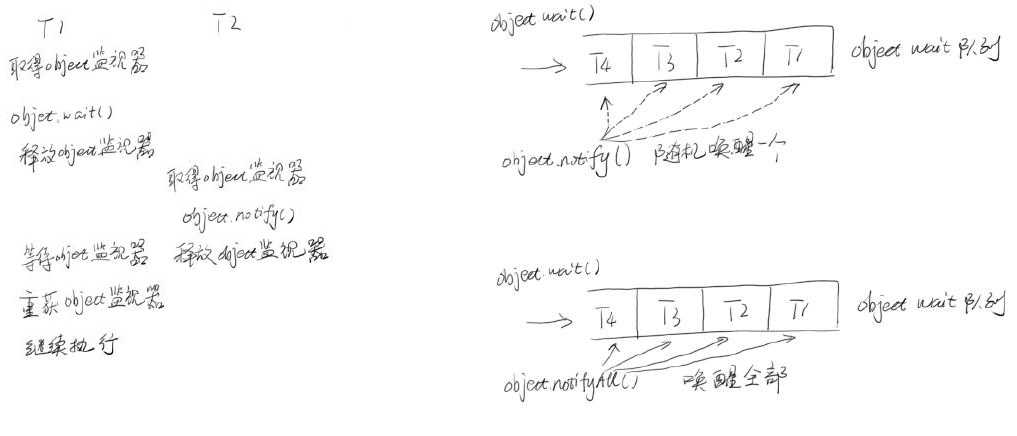 T1
T2
取得object监视器
objet.wait()
释放object监视器
取得object监视器
object.notify()
等待objet监视器
释放object监视器
重获object监视器
继续执行
object.wait()
T4 T3 T2 T1
object wait 队列
object.notify() 随机唤醒一个
object.wait()
T4 T3 T2 T1
object wait 队列
object.notifyAll() 唤醒全部